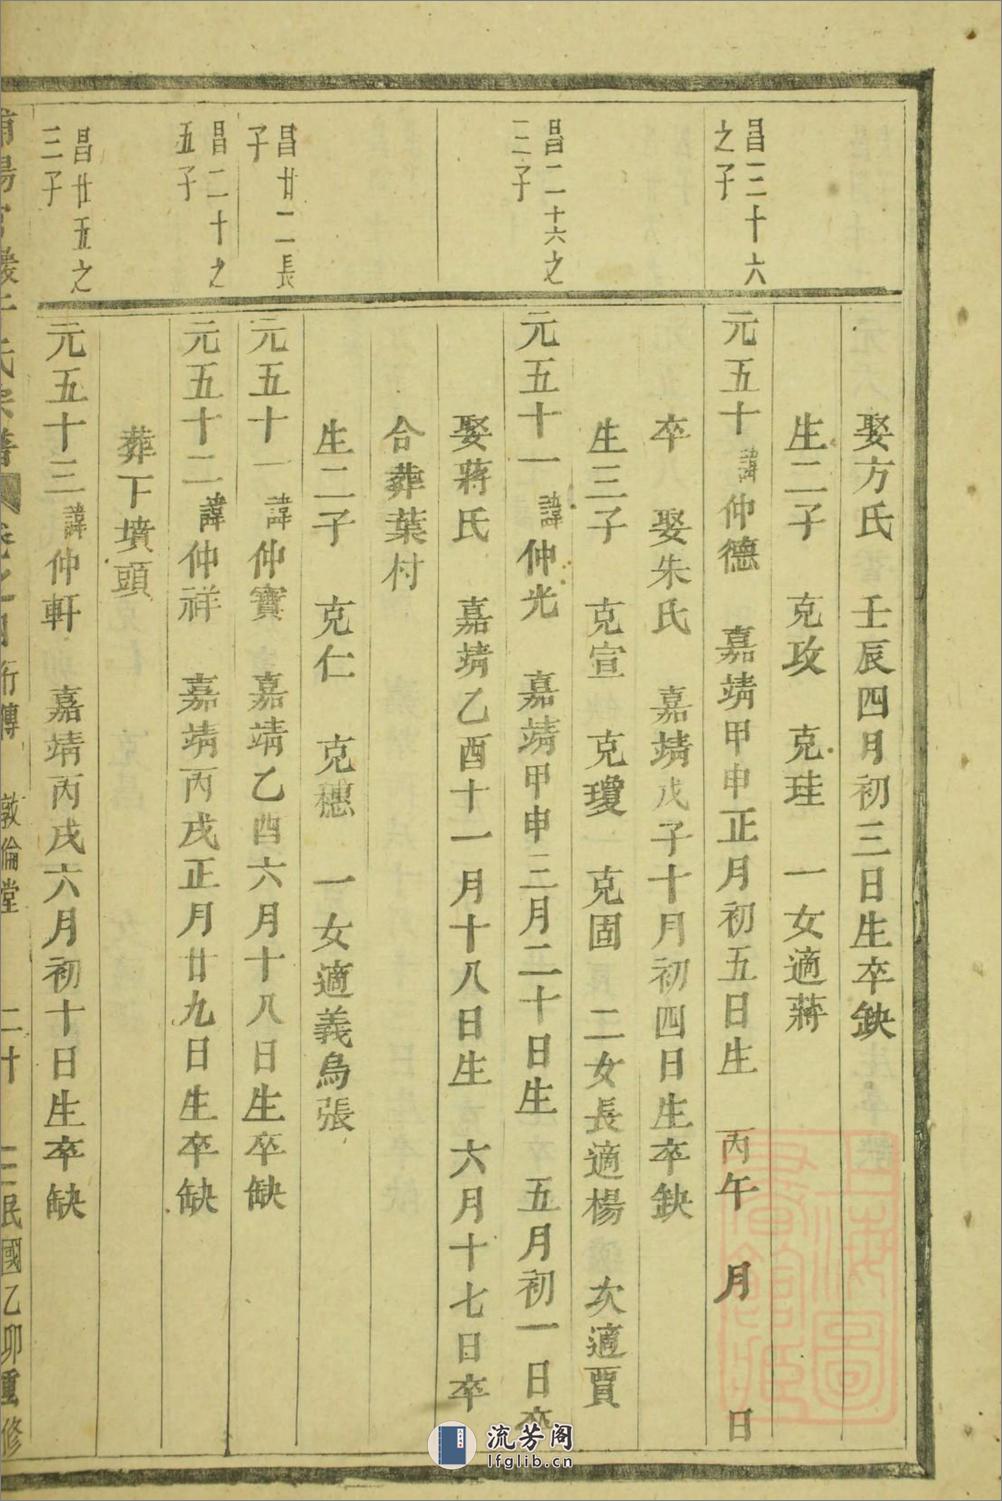 娶方氏　壬辰四月初三日生卒缺
生二子　克攻　克珪　一女適蔣
昌三十六
之子
元五十諱仲德　嘉靖甲申正月初五日生　丙午　月　日
卒　娶朱氏　嘉靖戊子十月初四日生卒缺
生三子　克宣　克瓊　克固　二女長適楊　次適賈
昌二十六之
三子
元五十一諱仲光　嘉靖甲申三月二十日生　五月初一日卒
娶蔣氏　嘉靖乙酉十一月十八日生　六月十七日卒
合葬葉村
生二子　克仁　克穗　一女適義烏張
昌廿二長
子
元五十一諱仲寶　嘉靖乙酉六月十八日生卒缺
昌二十之
五子
元五十二諱仲祥　嘉靖丙戌正月廿九日生卒缺
葬下墳頭
昌廿五之
三子
元五十三諱仲軒　嘉靖丙戌六月初十日生卒缺
氏宗譜　卷之四行傳　敦倫堂　二十　民國乙卯重修
上海圖書館藏
流芳阁
lfglib.cn